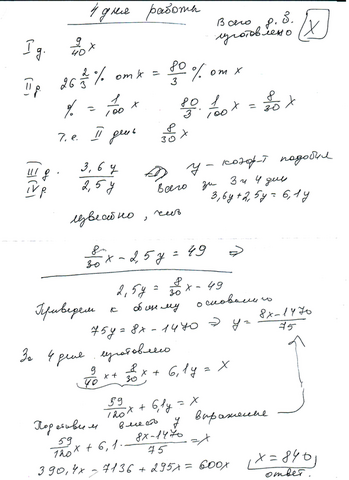 4 дня работы
Всего д. З. изготовлено X
I д. 9/40 x
II д 26 2/3 % от x = 80/3 % от x
% = 1/100 x 80/3 · 1/100 x = 8/30 x
т.е. II день 8/30 x
III д. 3,6y y - коэфт подобия
IV д 2,5y Всего за 3 и 4 дни
3,6y + 2,5y = 6,1y
известно, что
8/30 x - 2,5y = 49 ⇒
2,5y = 8/30 x - 49
Приведем к общему основанию
75y = 8x - 1470 ⇒ y = 8x-1470/75
За 4 дня изготовлено
9/40 x + 8/30 x + 6,1y = X
59/120 x + 6,1y = X
Подставим вместо y выражение
59/120 x + 6,1 · 8x-1470/75 = X
390,4x - 7136 + 295x = 600x X = 840
ответ.